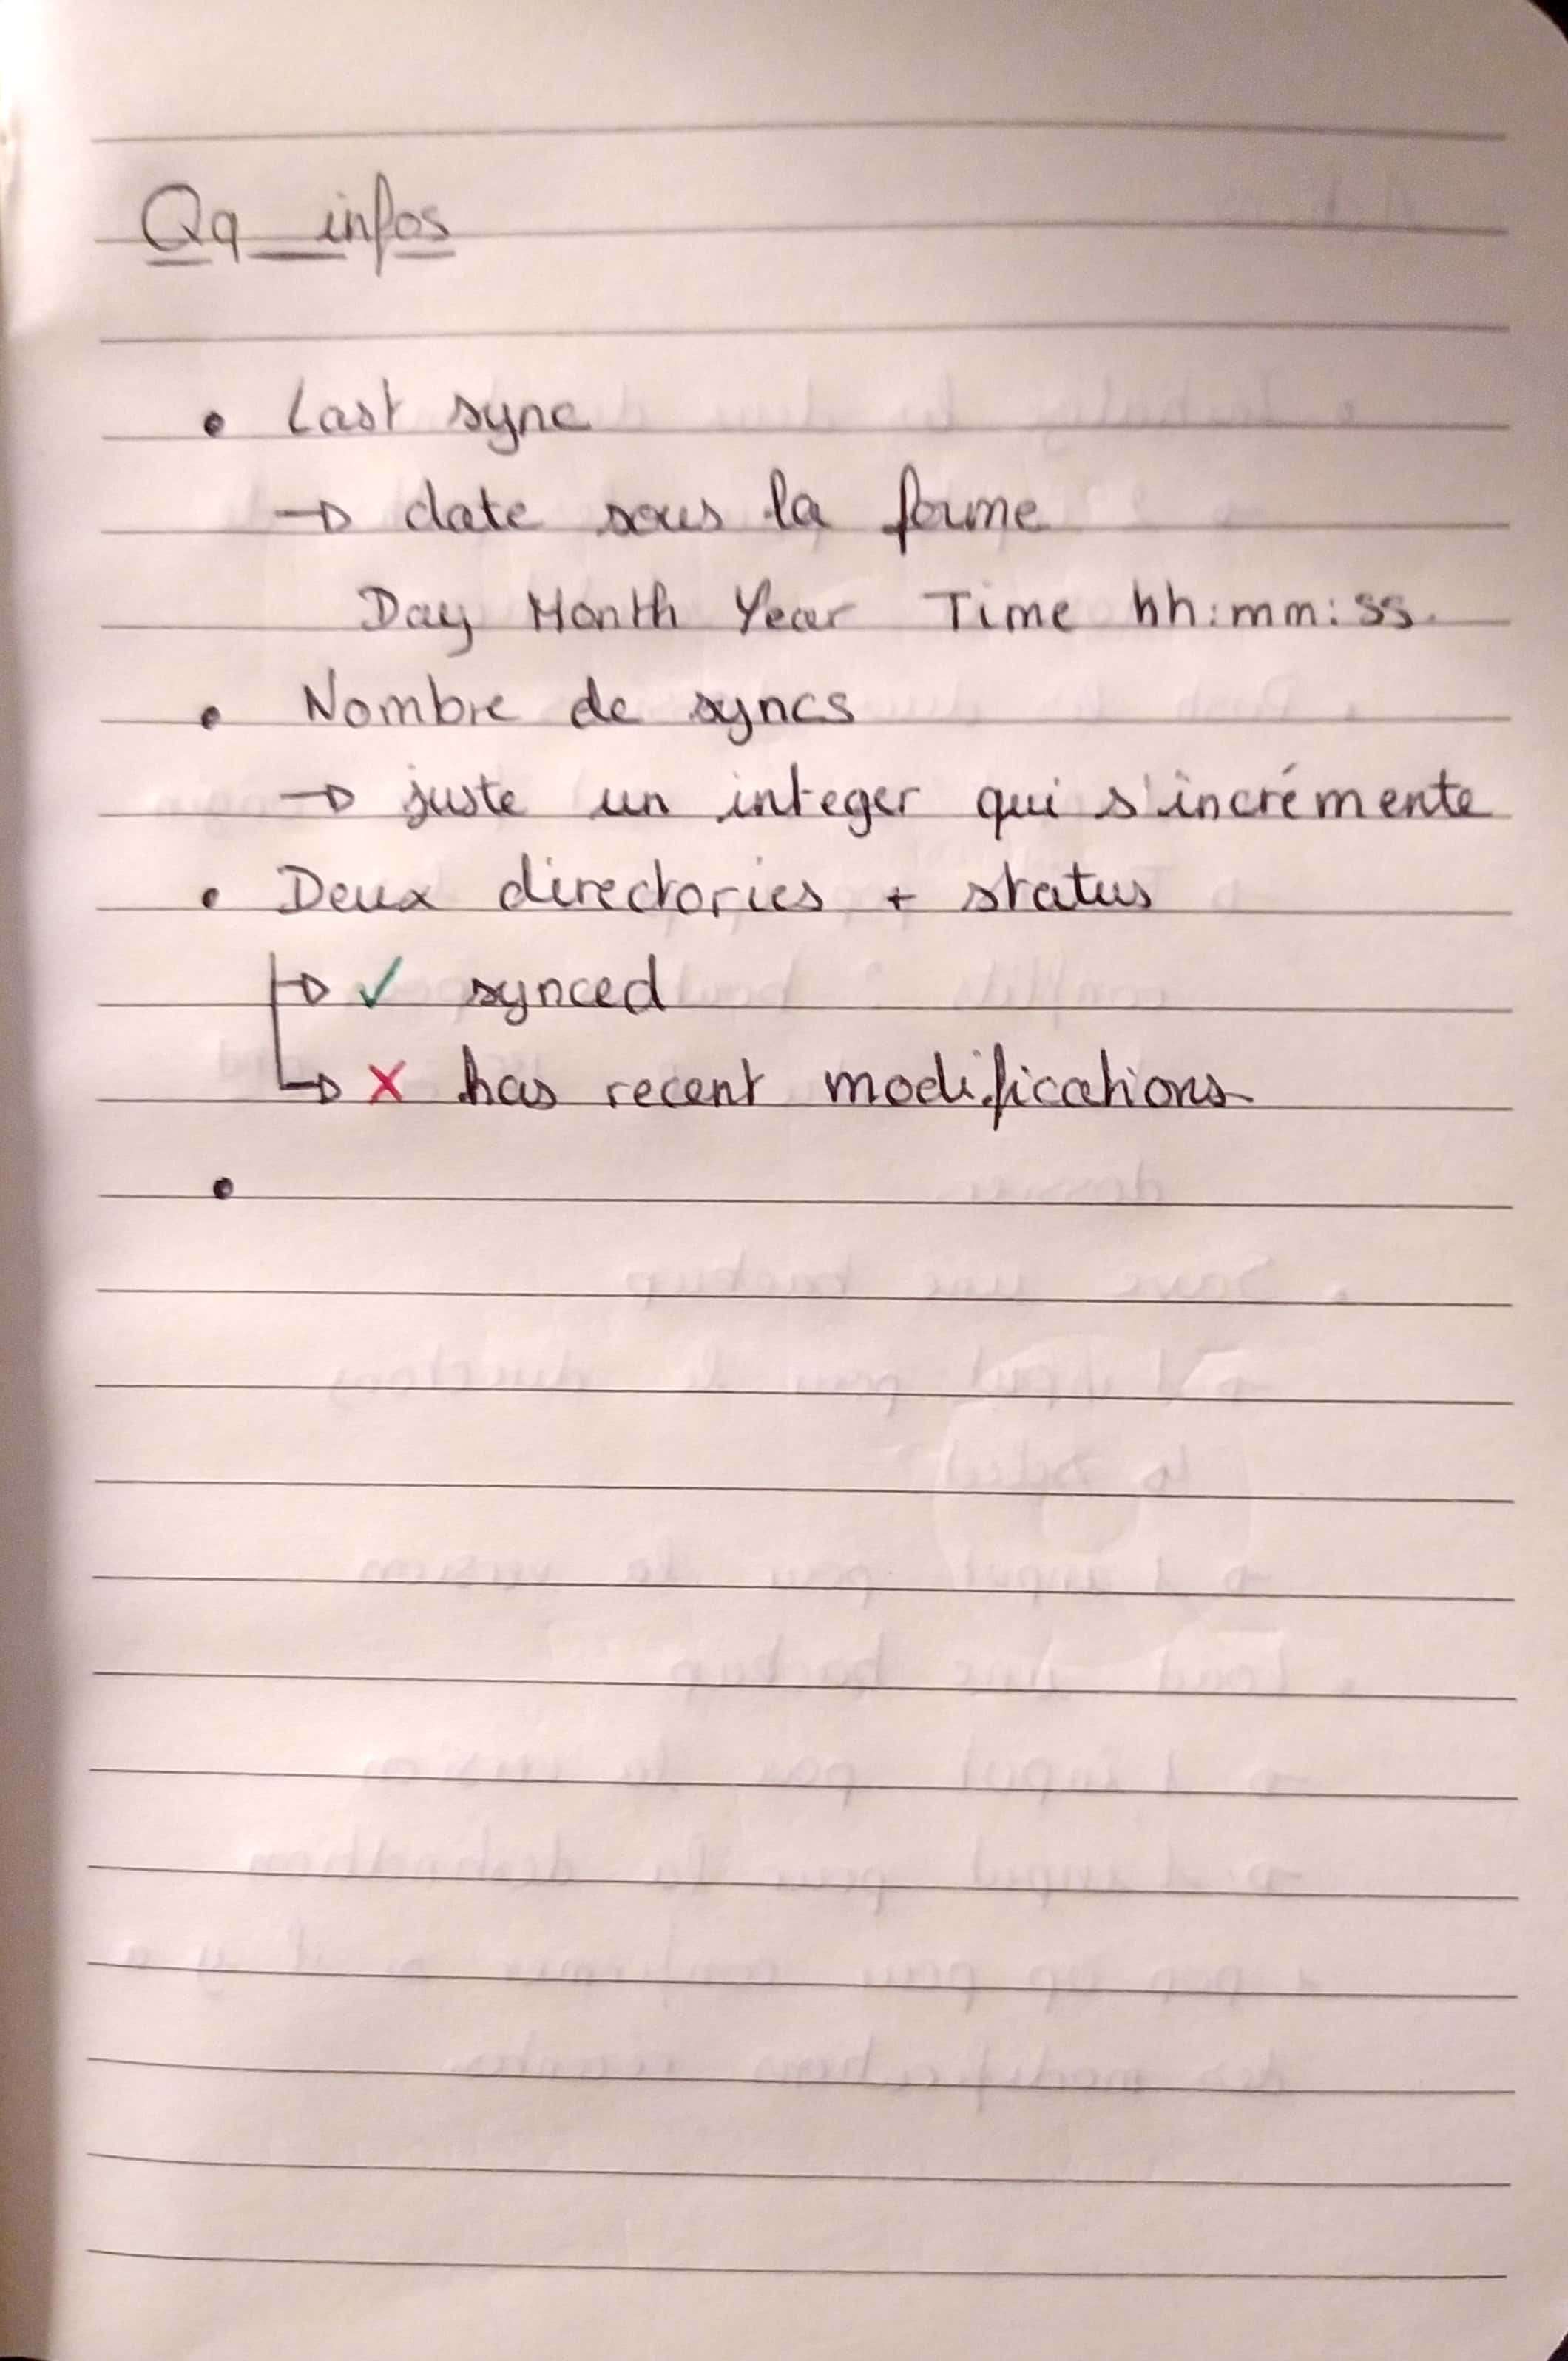 Qq infos
• Last sync
→ date sous la forme
Day Month Year Time hh:mm:ss
• Nombre de syncs
→ juste un integer qui s'incrémente
• Deux directories + status
→ ✓ synced
→ ✗ has recent modifications
•